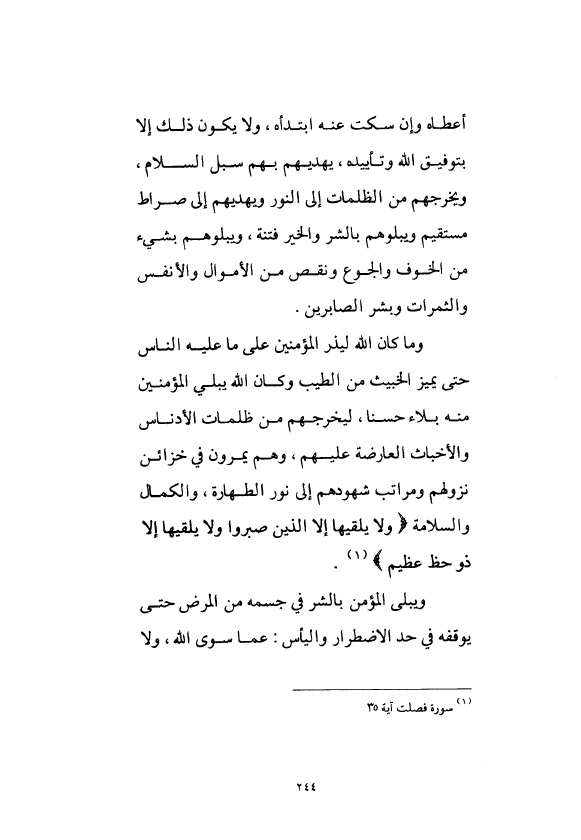 أعطاه وإن سكت عنه ابتدأه ، ولا يكون ذلك إلا
بتوفيق الله وتأييده ، يهديهم بهم سبل السلام ،
ويخرجهم من الظلمات إلى النور ويهديهم إلى صراط
مستقيم ويبلوهم بالشر والخير فتنة ، ويبلوهم بشيء
من الخوف والجوع ونقص من الأموال والأنفس
والثمرات وبشر الصابرين .
وما كان الله ليذر المؤمنين على ما عليه الناس
حتى يميز الخبيث من الطيب وكان الله يبلي المؤمنين
منه بلاء حسنا ، ليخرجهم من ظلمات الأدناس
والأخباث العارضة عليهم ، وهم يمرون في خزائن
نزولهم ومراتب شهودهم إلى نور الطهارة ، والكمال
والسلامة ﴿ ولا يلقيها إلا الذين صبروا ولا يلقيها إلا
ذو حظ عظيم ﴾ (١) .
ويبلى المؤمن بالشر في جسمه من المرض حتى
يوقفه في حد الاضطرار واليأس : عما سوى الله ، ولا
(١) سورة فصلت آية ٣٥
٢٤٤